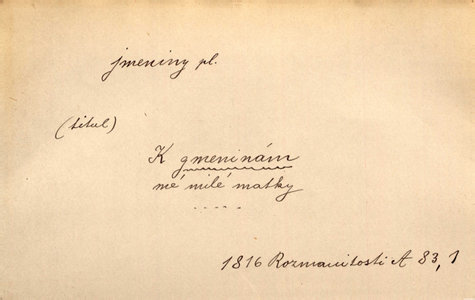 jmeniny pl.
(titul)
K gmeninám
mé milé matky
.....
1816 Rozmanitosti A 83, 1